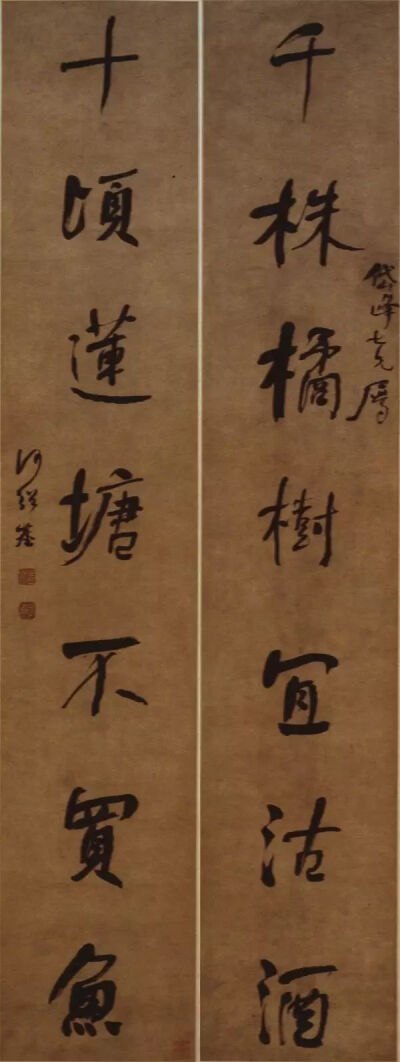 岱峰七兄屬
千株橘樹宜沽酒
十頃蓮塘不買魚
何紹基